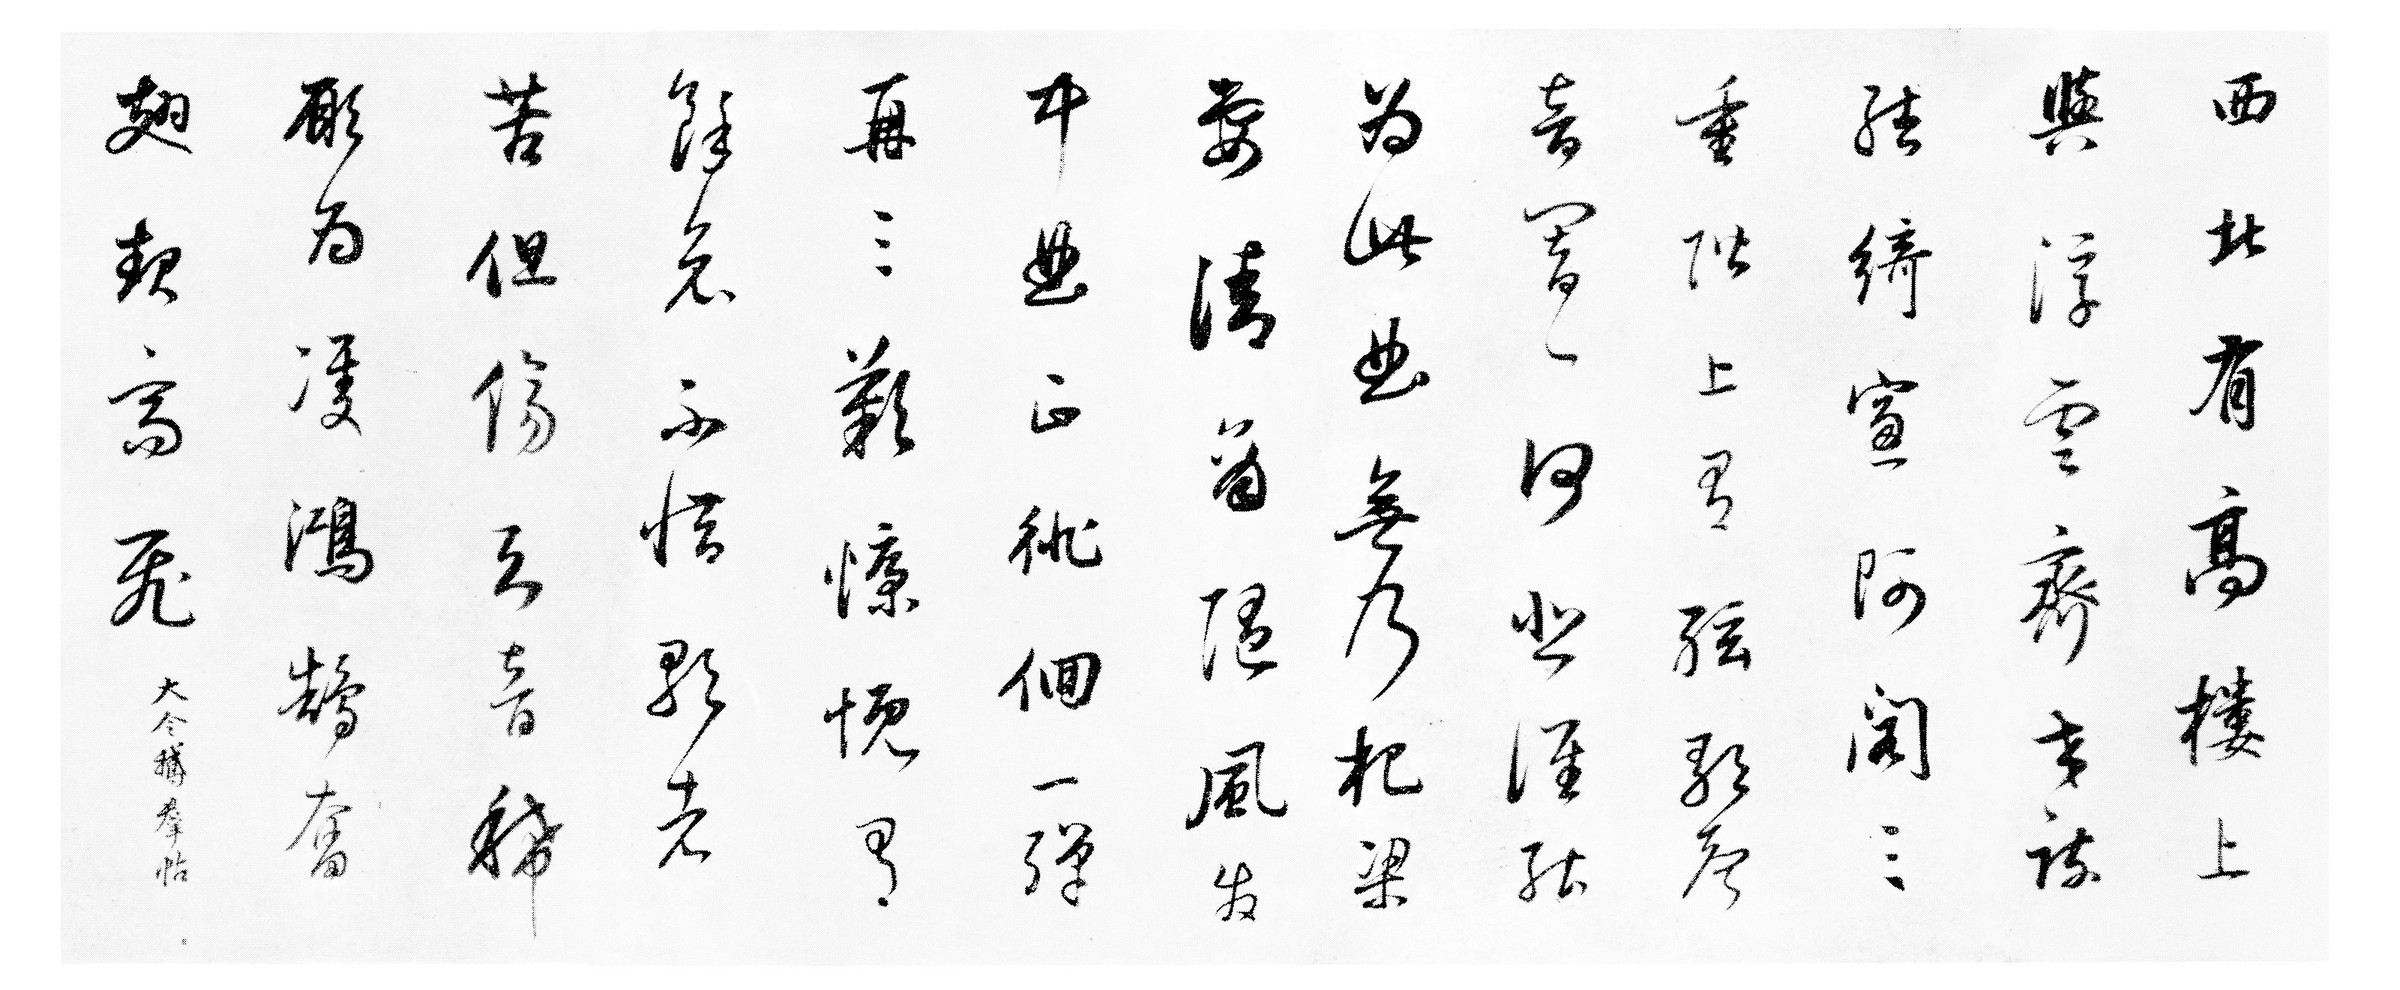 西北有高樓上
與浮雲齊交疏
結綺窗阿閣三
重階上有弦歌聲
音響一何悲誰能
為此曲無乃杞梁
妻清商隨風發
中曲正徘徊一彈
再三歎慷慨有
餘哀不惜歌者
苦但傷知音稀
願為雙鴻鵠奮
翅起高飛 大令鵝群帖